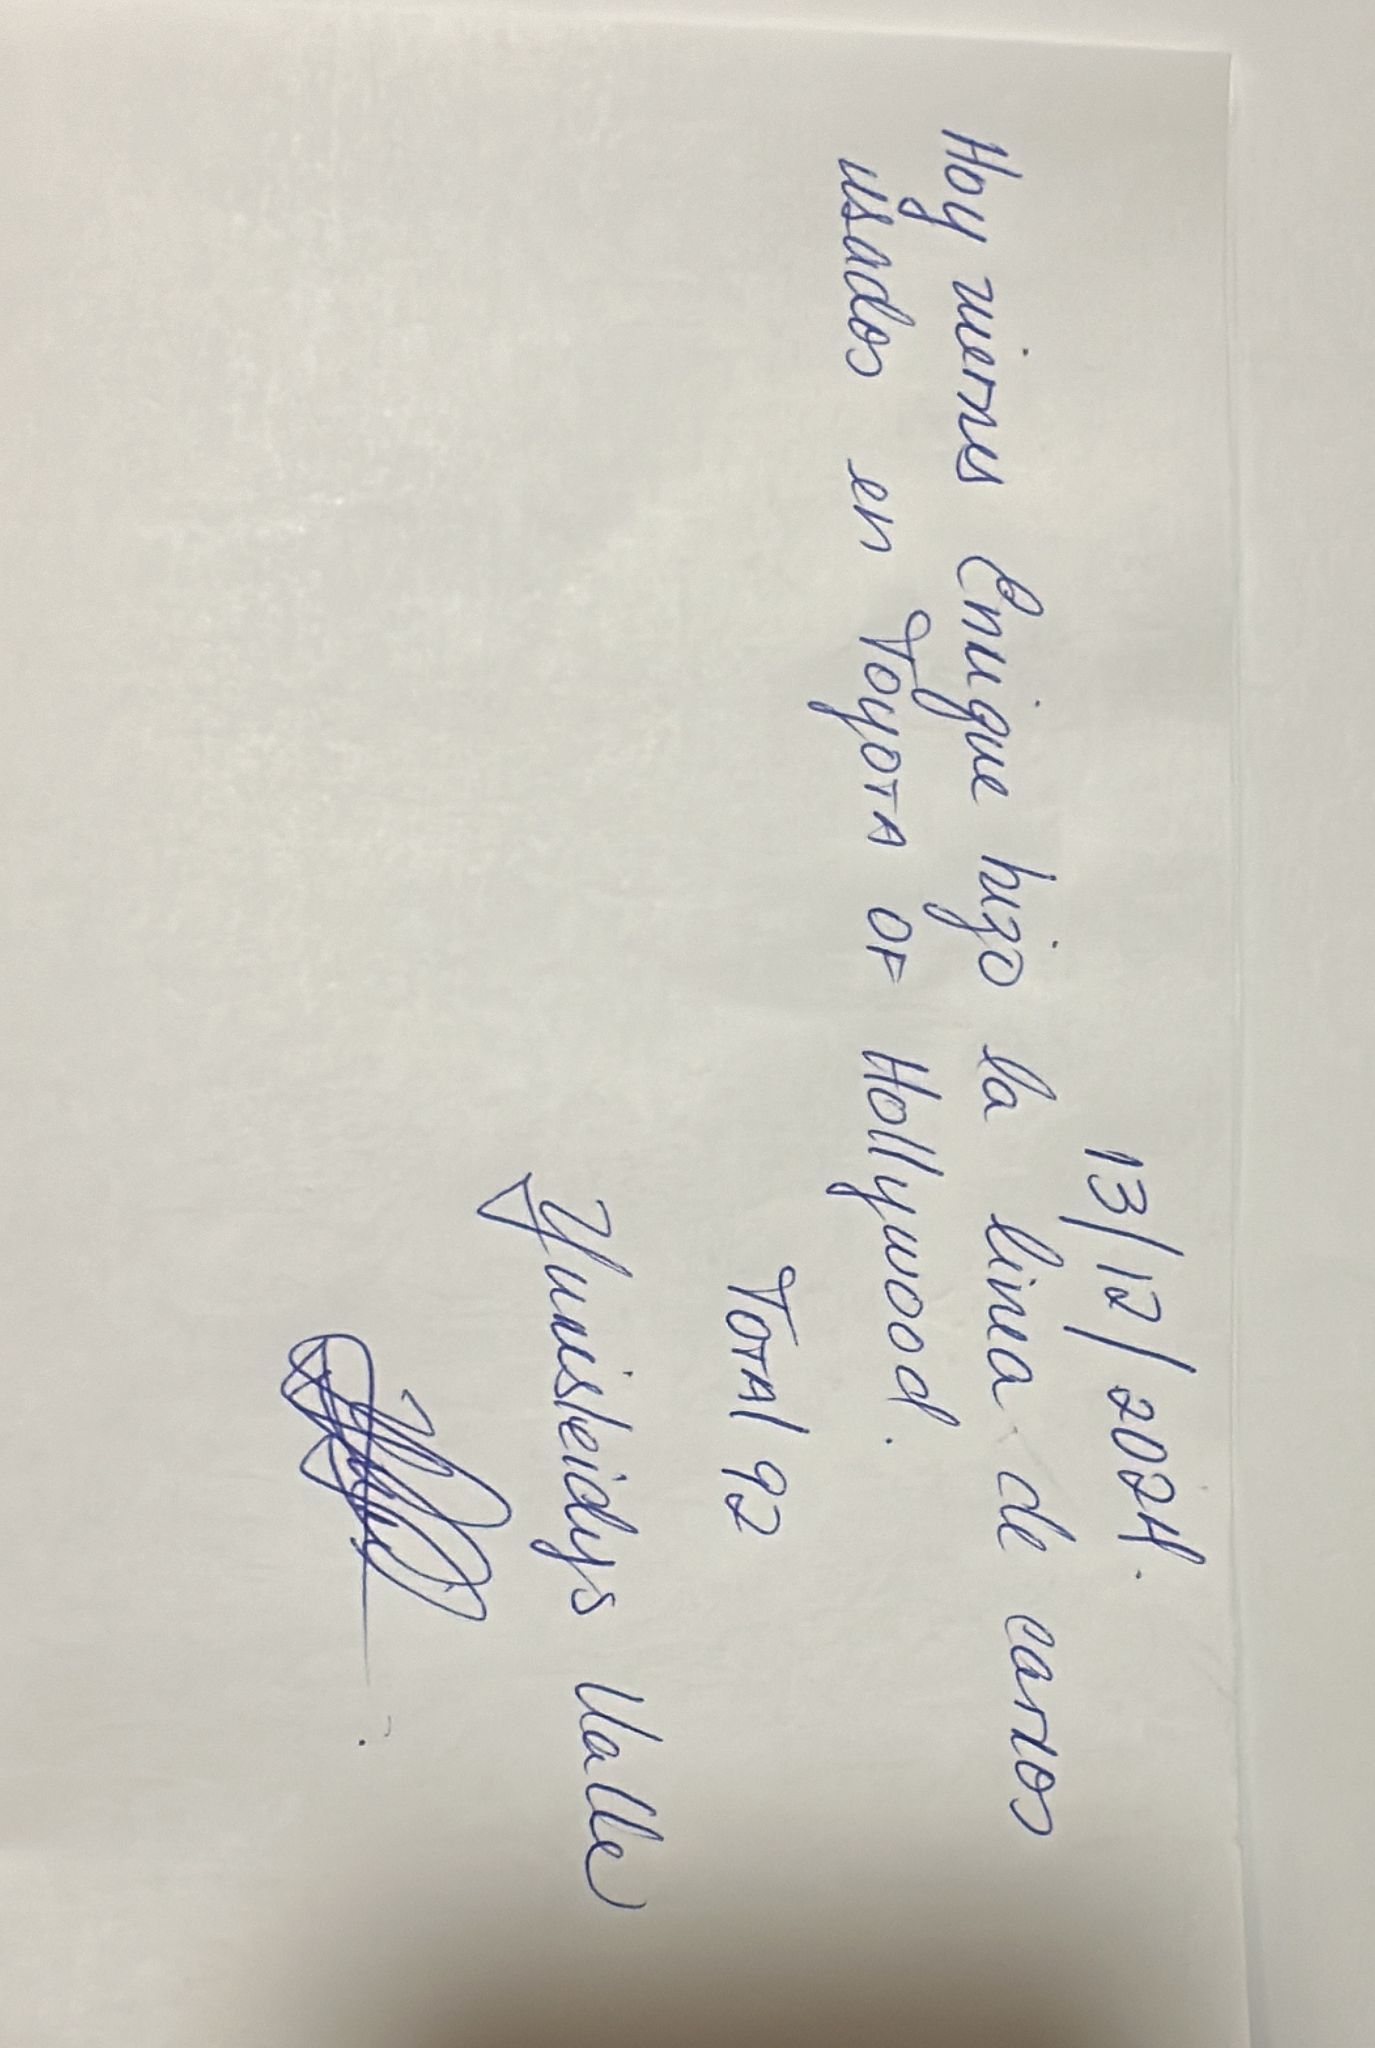 13/12/2024.
Hoy viernes Enrique hizo la linea de carros
usados en Toyota of Hollywood.
Total 92
Yunisleidys Valle